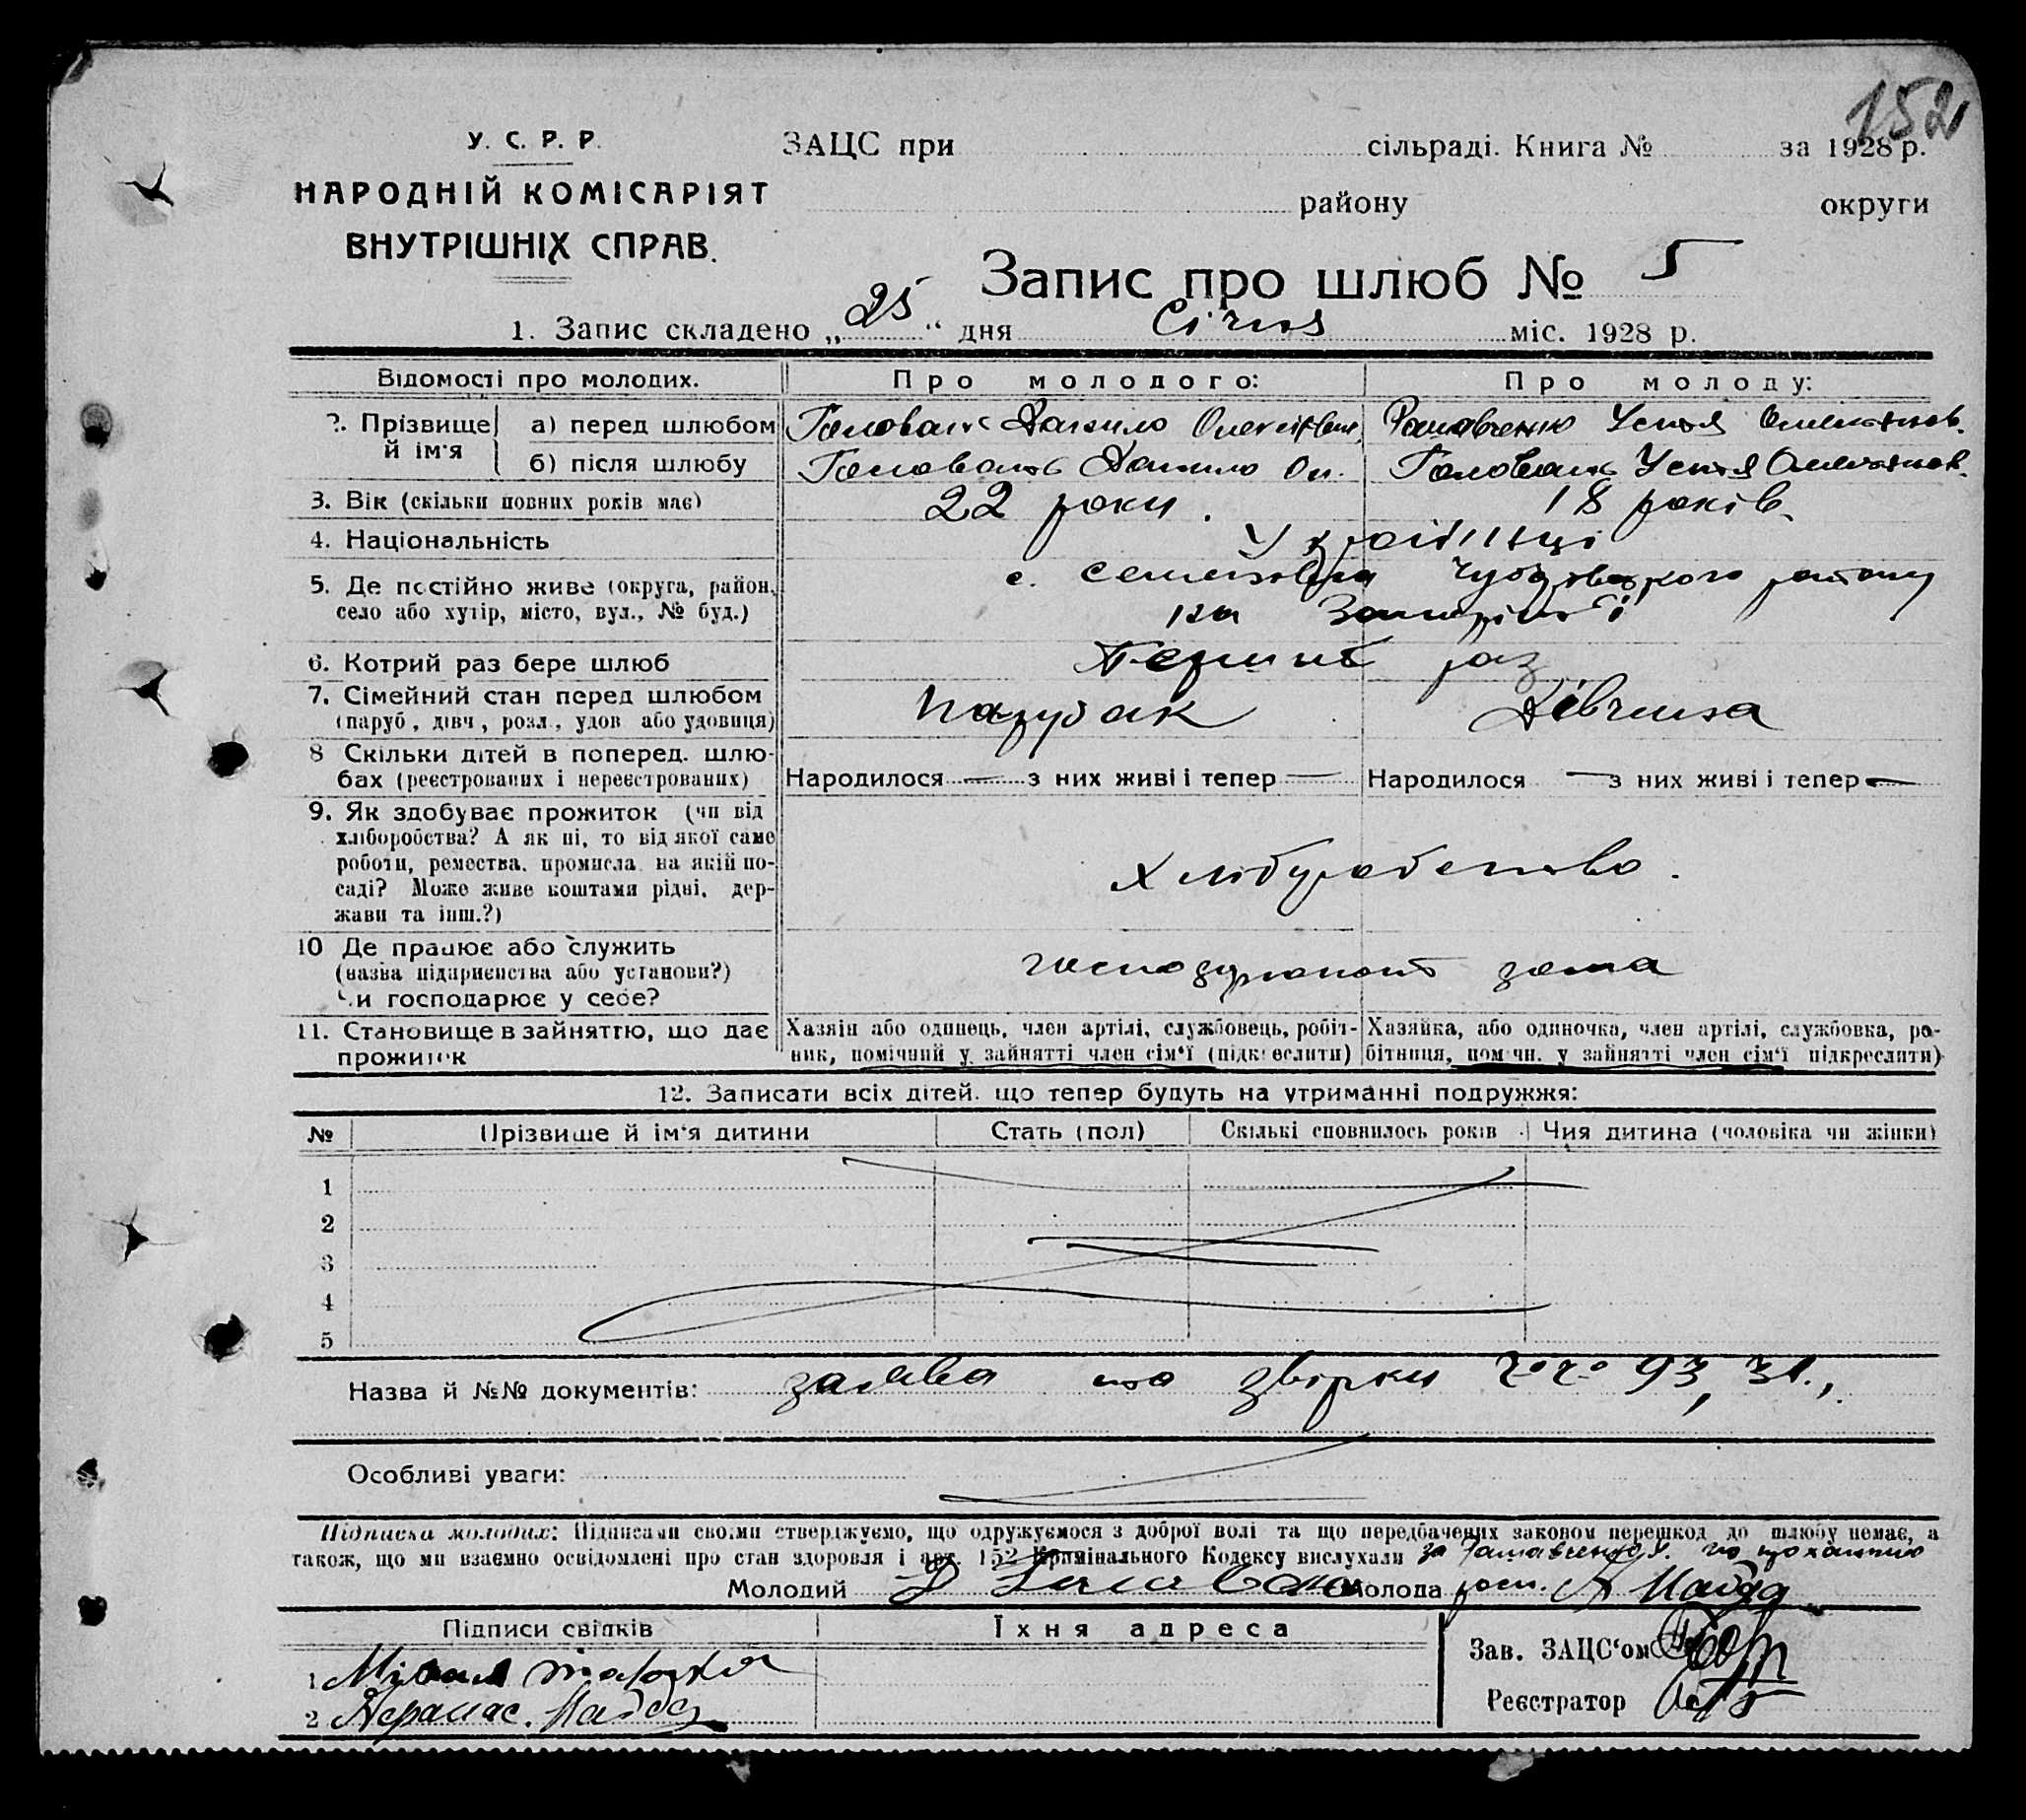 152
У. С. Р. Р.
НАРОДНІЙ КОМІСАРІЯТ
ВНУТРІШНІХ СПРАВ.
ЗАЦС при сільраді. Книга № за 1928 р.
району округи
Запис про шлюб № 5
1. Запис складено „25“ дня Січня міс. 1928 р.
Відомості про молодих. Про молодого: Про молоду:
2. Прізвище й ім'я
а) перед шлюбом Головань Данило Устя
б) після шлюбу Головань Данило Ол. Головань Устя
3. Вік (скільки повних років має) 22 роки. 18 років.
4. Національність Українці
5. Де постійно живе (округа, район, село або хутір, місто, вул., № буд.) с. району
на Запоріжжі
6. Котрий раз бере шлюб Перший раз
7. Сімейний стан перед шлюбом Парубак Дівчина
(паруб., дівч., розл., удов. або удовиця)
8 Скільки дітей в поперед. шлю-
бах (реєстрованих і нереєстрованих) Народилося — з них живі і тепер — Народилося — з них живі і тепер —
9. Як здобуває прожиток (чи від
хліборобства? А як ні, то від якої саме
роботи, ремества, промисла, на якій по-
саді? Може живе коштами рідні, дер-
жави та інш.?)
Хліборобство.
10 Де працює або служить
(назва підприємства або установи?)
Чи господарює у себе?
господарюють дома
11. Становище в зайняттю, що дає
прожиток
Хазяін або одинець, член артілі, службовець, робіт-
ник, помічний у зайнятті член сім'ї (підкреслити)
Хазяйка, або одиночка, член артілі, службовка, ро-
бітниця, помічн. у зайнятті член сім'ї підкреслити)
12. Записати всіх дітей, що тепер будуть на утриманні подружжя:
№ Прізвище й ім'я дитини Стать (пол) Скількі сповнилось років Чия дитина (чоловіка чи жінки)
1
2
3
4
5
Назва й №№ документів: заява та звірки 93, 31.,
Особливі уваги:
Підписка молодих: Підписами своїми стверджуємо, що одружуємося з доброї волі та що передбачених законом перешкод до шлюбу немає, а
також, що ми взаємно освідомлені про стан здоровля і арт. 152 Крімінального Кодексу вислухали за
Молодий Молода
Підписи свідків Їхня адреса
1
2
Зав. ЗАЦС'ом
Реєстратор